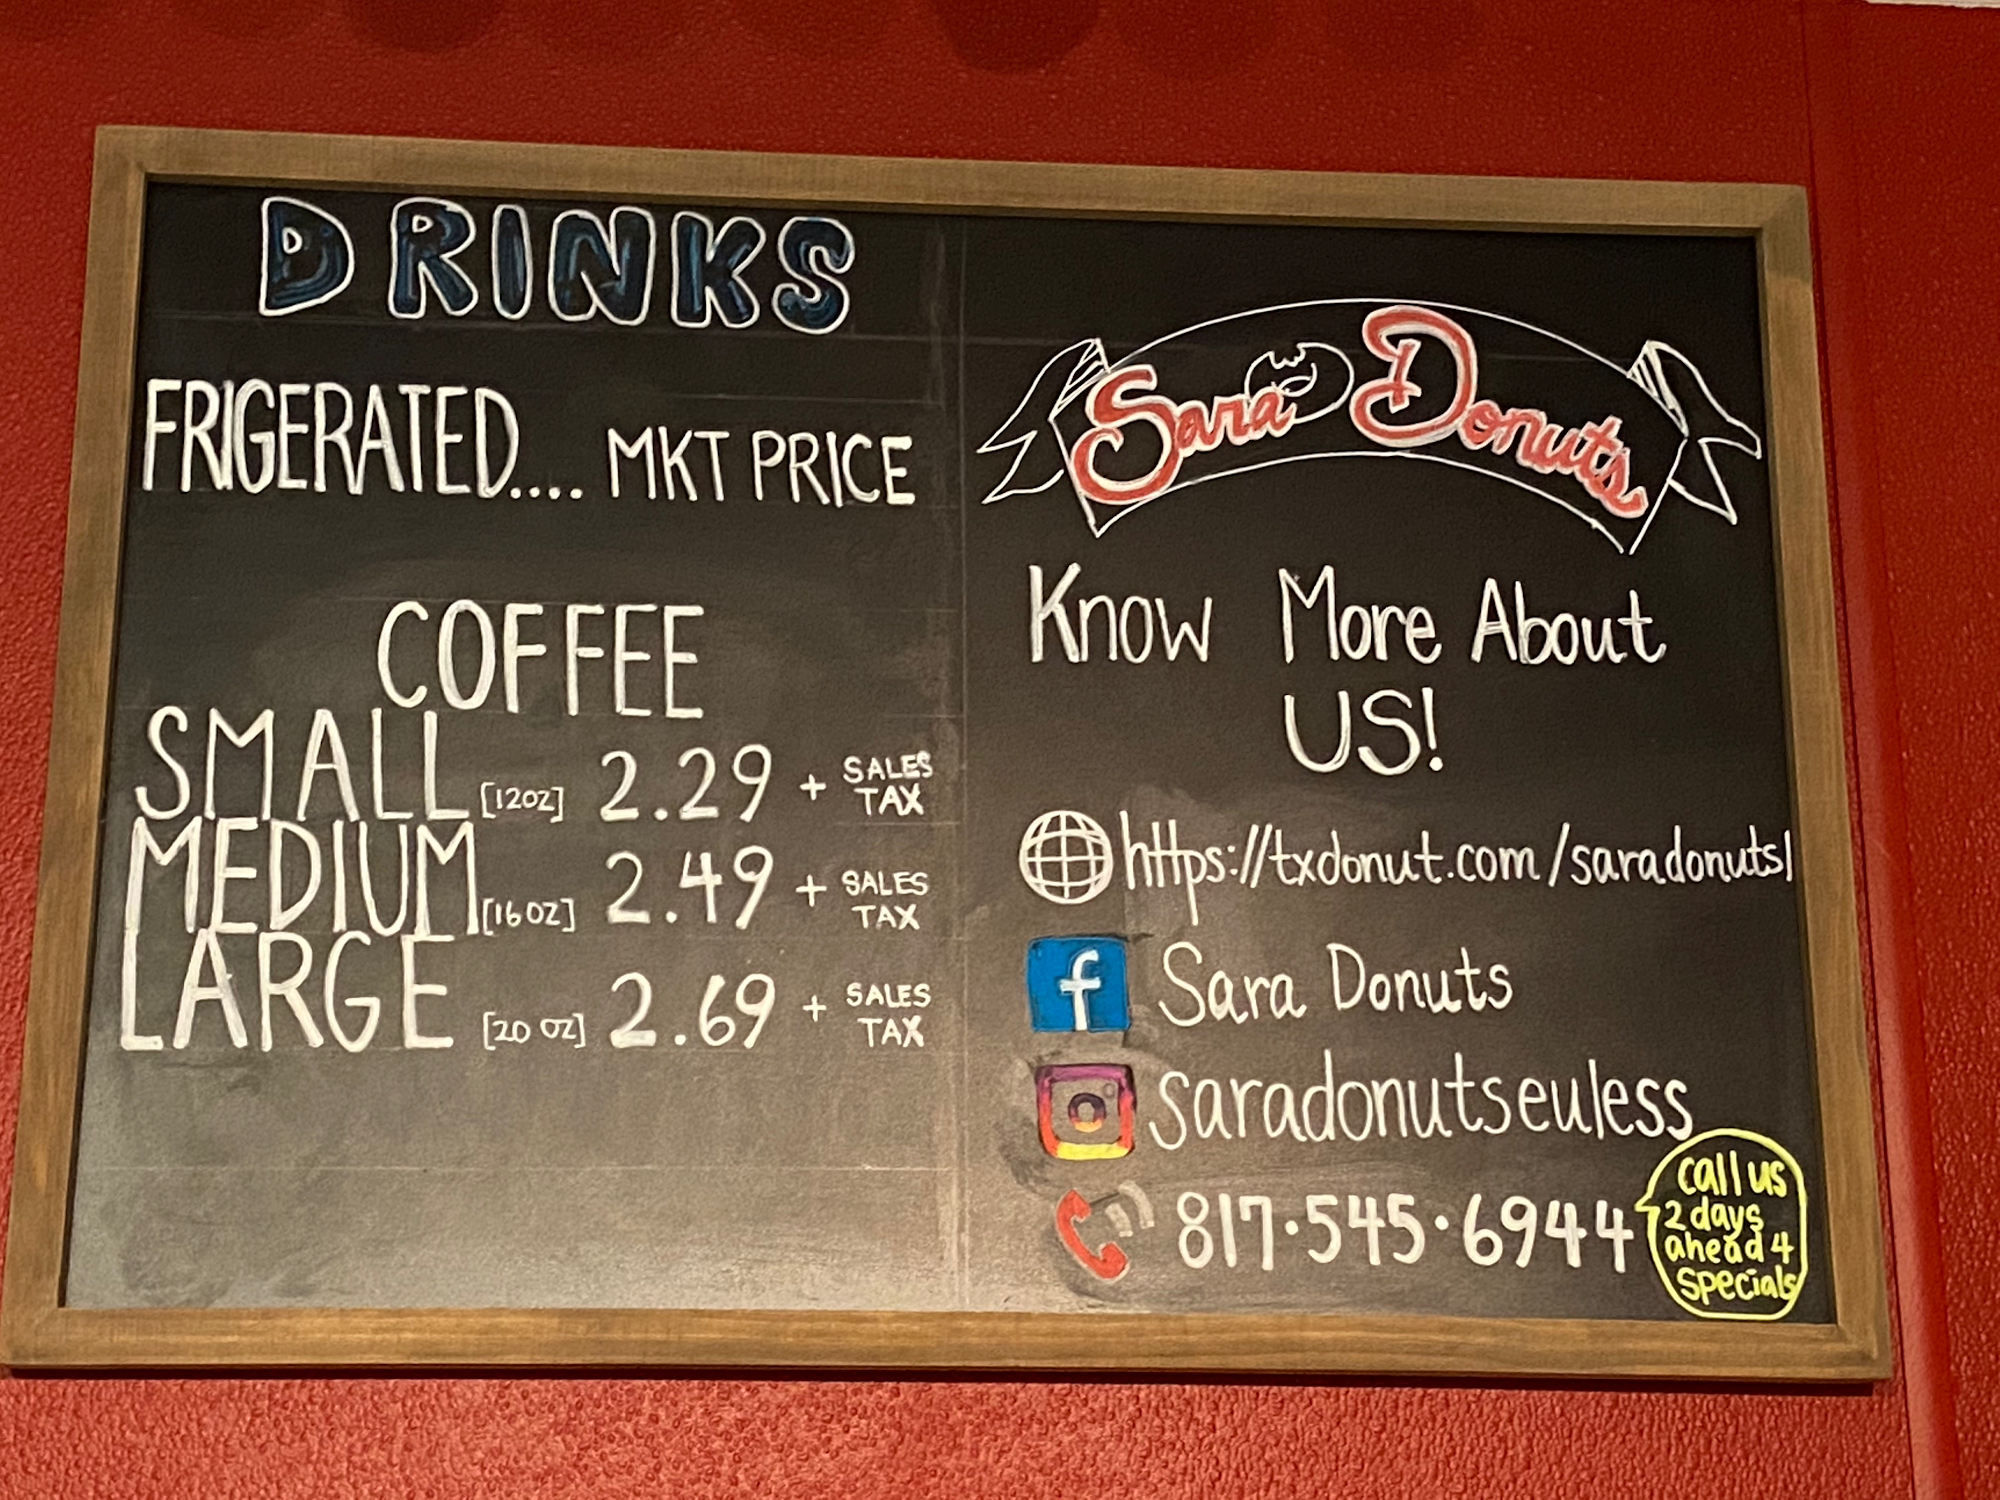 DRINKS
FRIGERATED.... MKT PRICE
COFFEE
SMALL [12OZ] 2.29 + SALES TAX
MEDIUM [16 OZ] 2.49 + SALES TAX
LARGE [20 OZ] 2.69 + SALES TAX
Sara Donuts
Know More About
US!
https://txdonut.com/saradonuts1
f Sara Donuts
saradonutseuless
817·545·6944
call us
2 days
ahead 4
specials